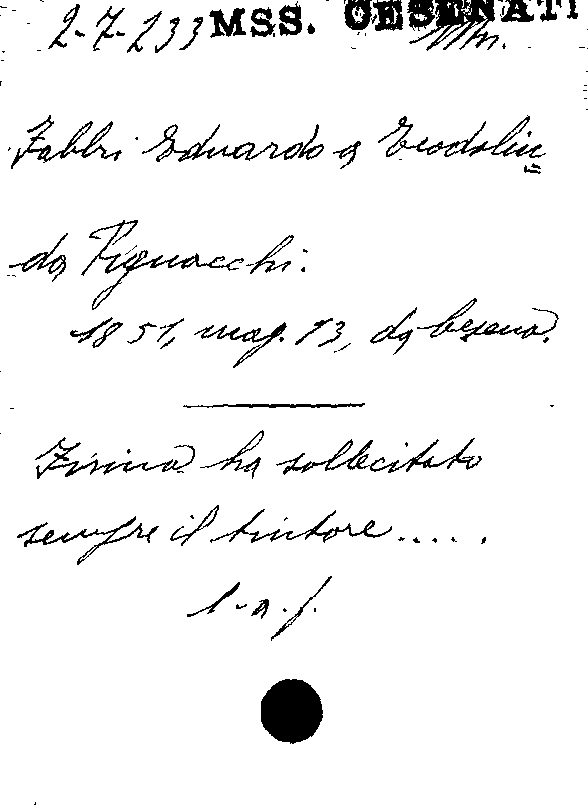 2-7-233 MSS. CESENATI
Fabbri Eduardo a Teodolin
da Pignocchi.
1851, mag. 13, da Cesena.
Firina ha sollecitato
sempre il tintore.....
l.a.f.